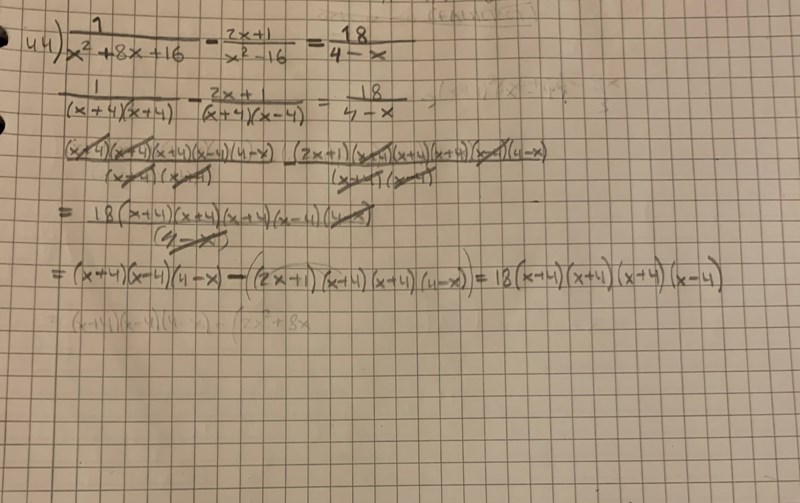 44) 1/(x² + 8x + 16) - (2x+1)/(x² - 16) = 18/(4 - x)
1/((x+4)(x+4)) - (2x+1)/((x+4)(x-4)) = 18/(4-x)
(x+4)(x+4)(x+4)(x-4)(4-x)/((x+4)(x+4)) - (2x+1)(x+4)(x+4)(x+4)(x-4)(4-x)/((x+4)(x-4))
= 18(x+4)(x+4)(x+4)(x-4)(4-x)/(4-x)
= (x+4)(x-4)(4-x) - ((2x+1)(x+4)(x+4)(4-x)) = 18(x+4)(x+4)(x+4)(x-4)
(x+4)(x-4)(4-x) - (2x² + 8x